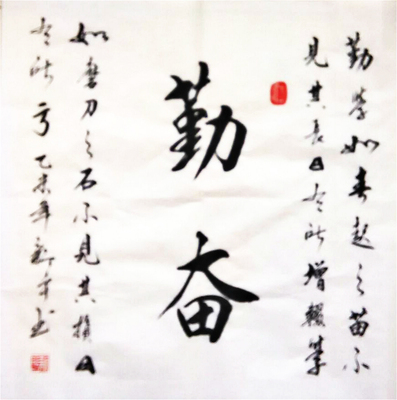 勤学如春起之苗不
見其長日有所增輟学
勤奋
如磨刀之石不見其損日
有所亏乙未年書